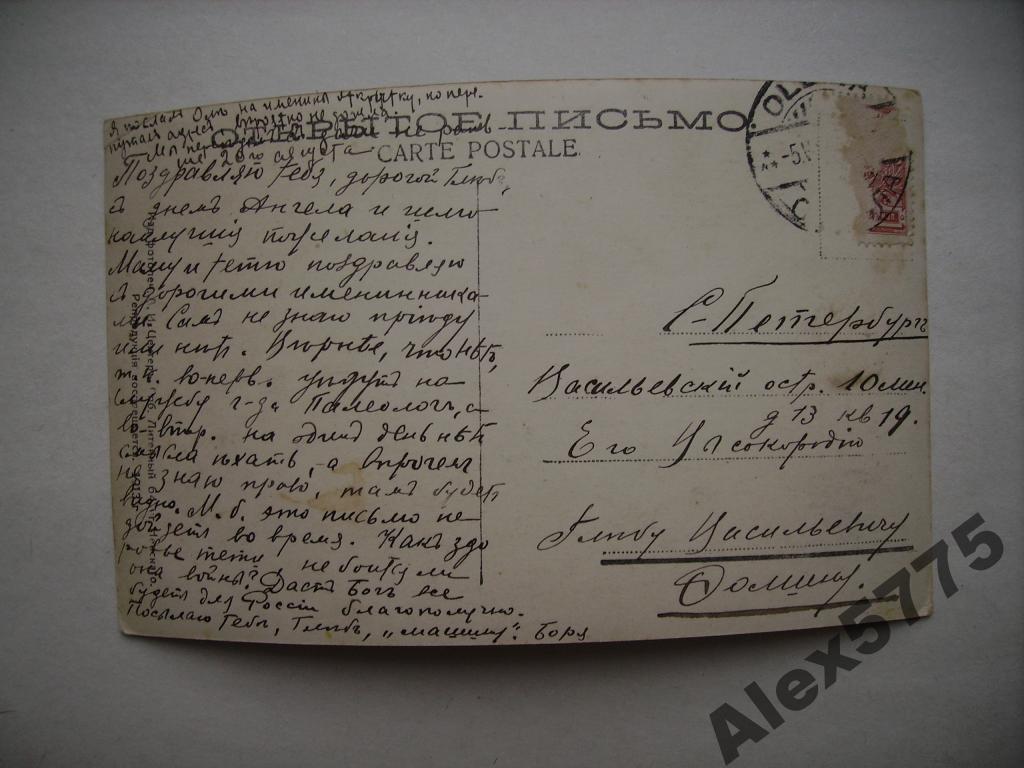 Я послал Оле на именины открытку, но пере-
путал адрес
не 20го августа
ОТКРЫТОЕ ПИСЬМО
CARTE POSTALE.
Поздравляю тебя, дорогой Глѣбъ,
съ днемъ Ангела и шлю
наилучшія пожеланія.
Маму и тетю поздравляю
съ дорогими именинника-
ми. Самъ не знаю приѣду
или нѣтъ. Вѣрнѣе, что нѣтъ,
т. к. вопервъ. уйдутъ на
службу г-да Палеологъ, а
вo втор. на одинъ день нѣтъ
смысла ѣхать, а впрочемъ
не знаю право, тамъ будетъ
видно. М. б. это письмо не
дойдетъ во время. Какъ здо
ровье тети, не боится ли
она войны? Дастъ Богъ все
будетъ для Россіи благополучно.
Посылаю тебѣ, Глѣбъ, "машину". Боря
С-Петербургъ
Васильевскій остр. 10 лин.
д 13 кв 19.
Его Высокородію
Глѣбу Васильевичу
Фомину.
Alex5775